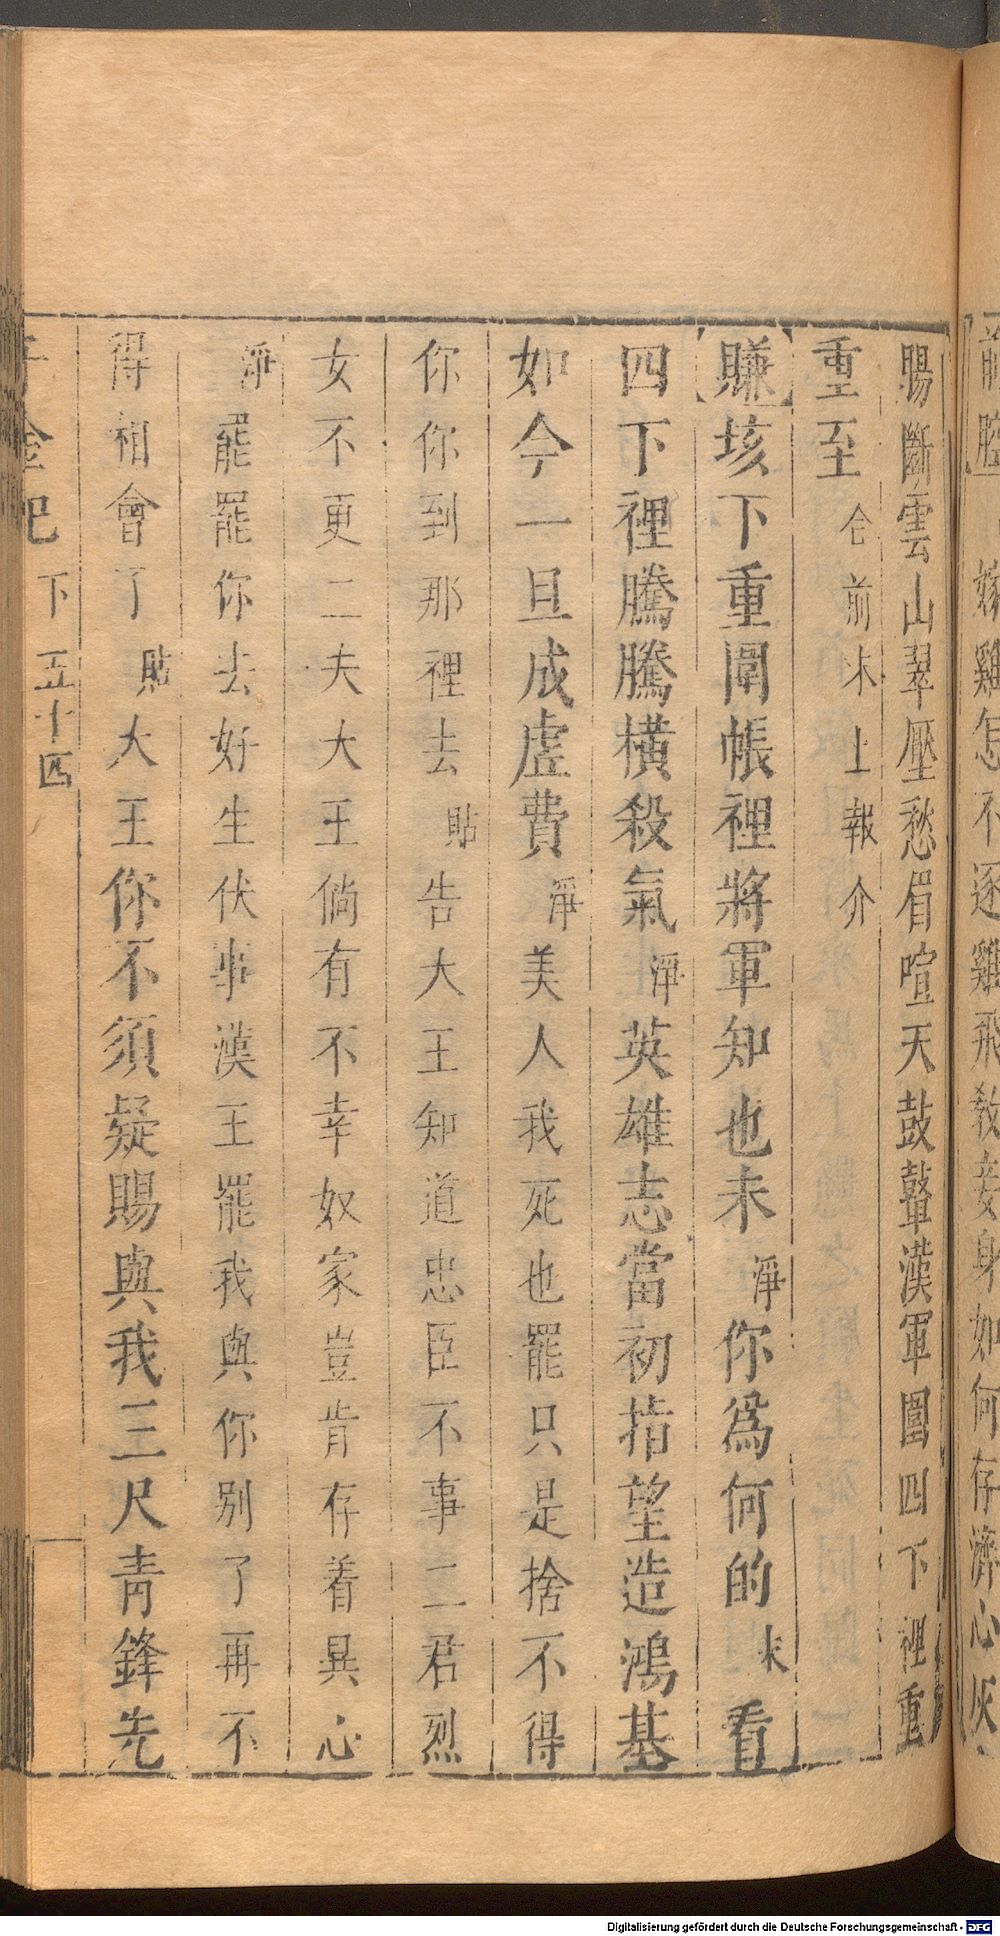 前腔 嫁雞怎不逐雞飛教妾身如何存濟心灰
腸斷雲山翠壓愁眉喧天鼓鼙漢軍圍四下裡重
重至 合前 末上報介
賺 垓下重闈帳裡將軍知也未 淨 你為何的 末 看
四下裡騰騰橫殺氣 淨 英雄志當初指望造鴻基
如今一旦成虛費 淨 美人我死也罷只是捨不得
你你到那裡去 貼 告大王知道忠臣不事二君烈
女不更二夫大王倘有不幸奴家豈肯存着異心
淨 罷罷你去好生伏事漢王罷我與你别了再不
得相會了 貼 大王你不須疑賜與我三尺青鋒先
千金記 下 五十四
Digitalisierung gefördert durch die Deutsche Forschungsgemeinschaft - DFG